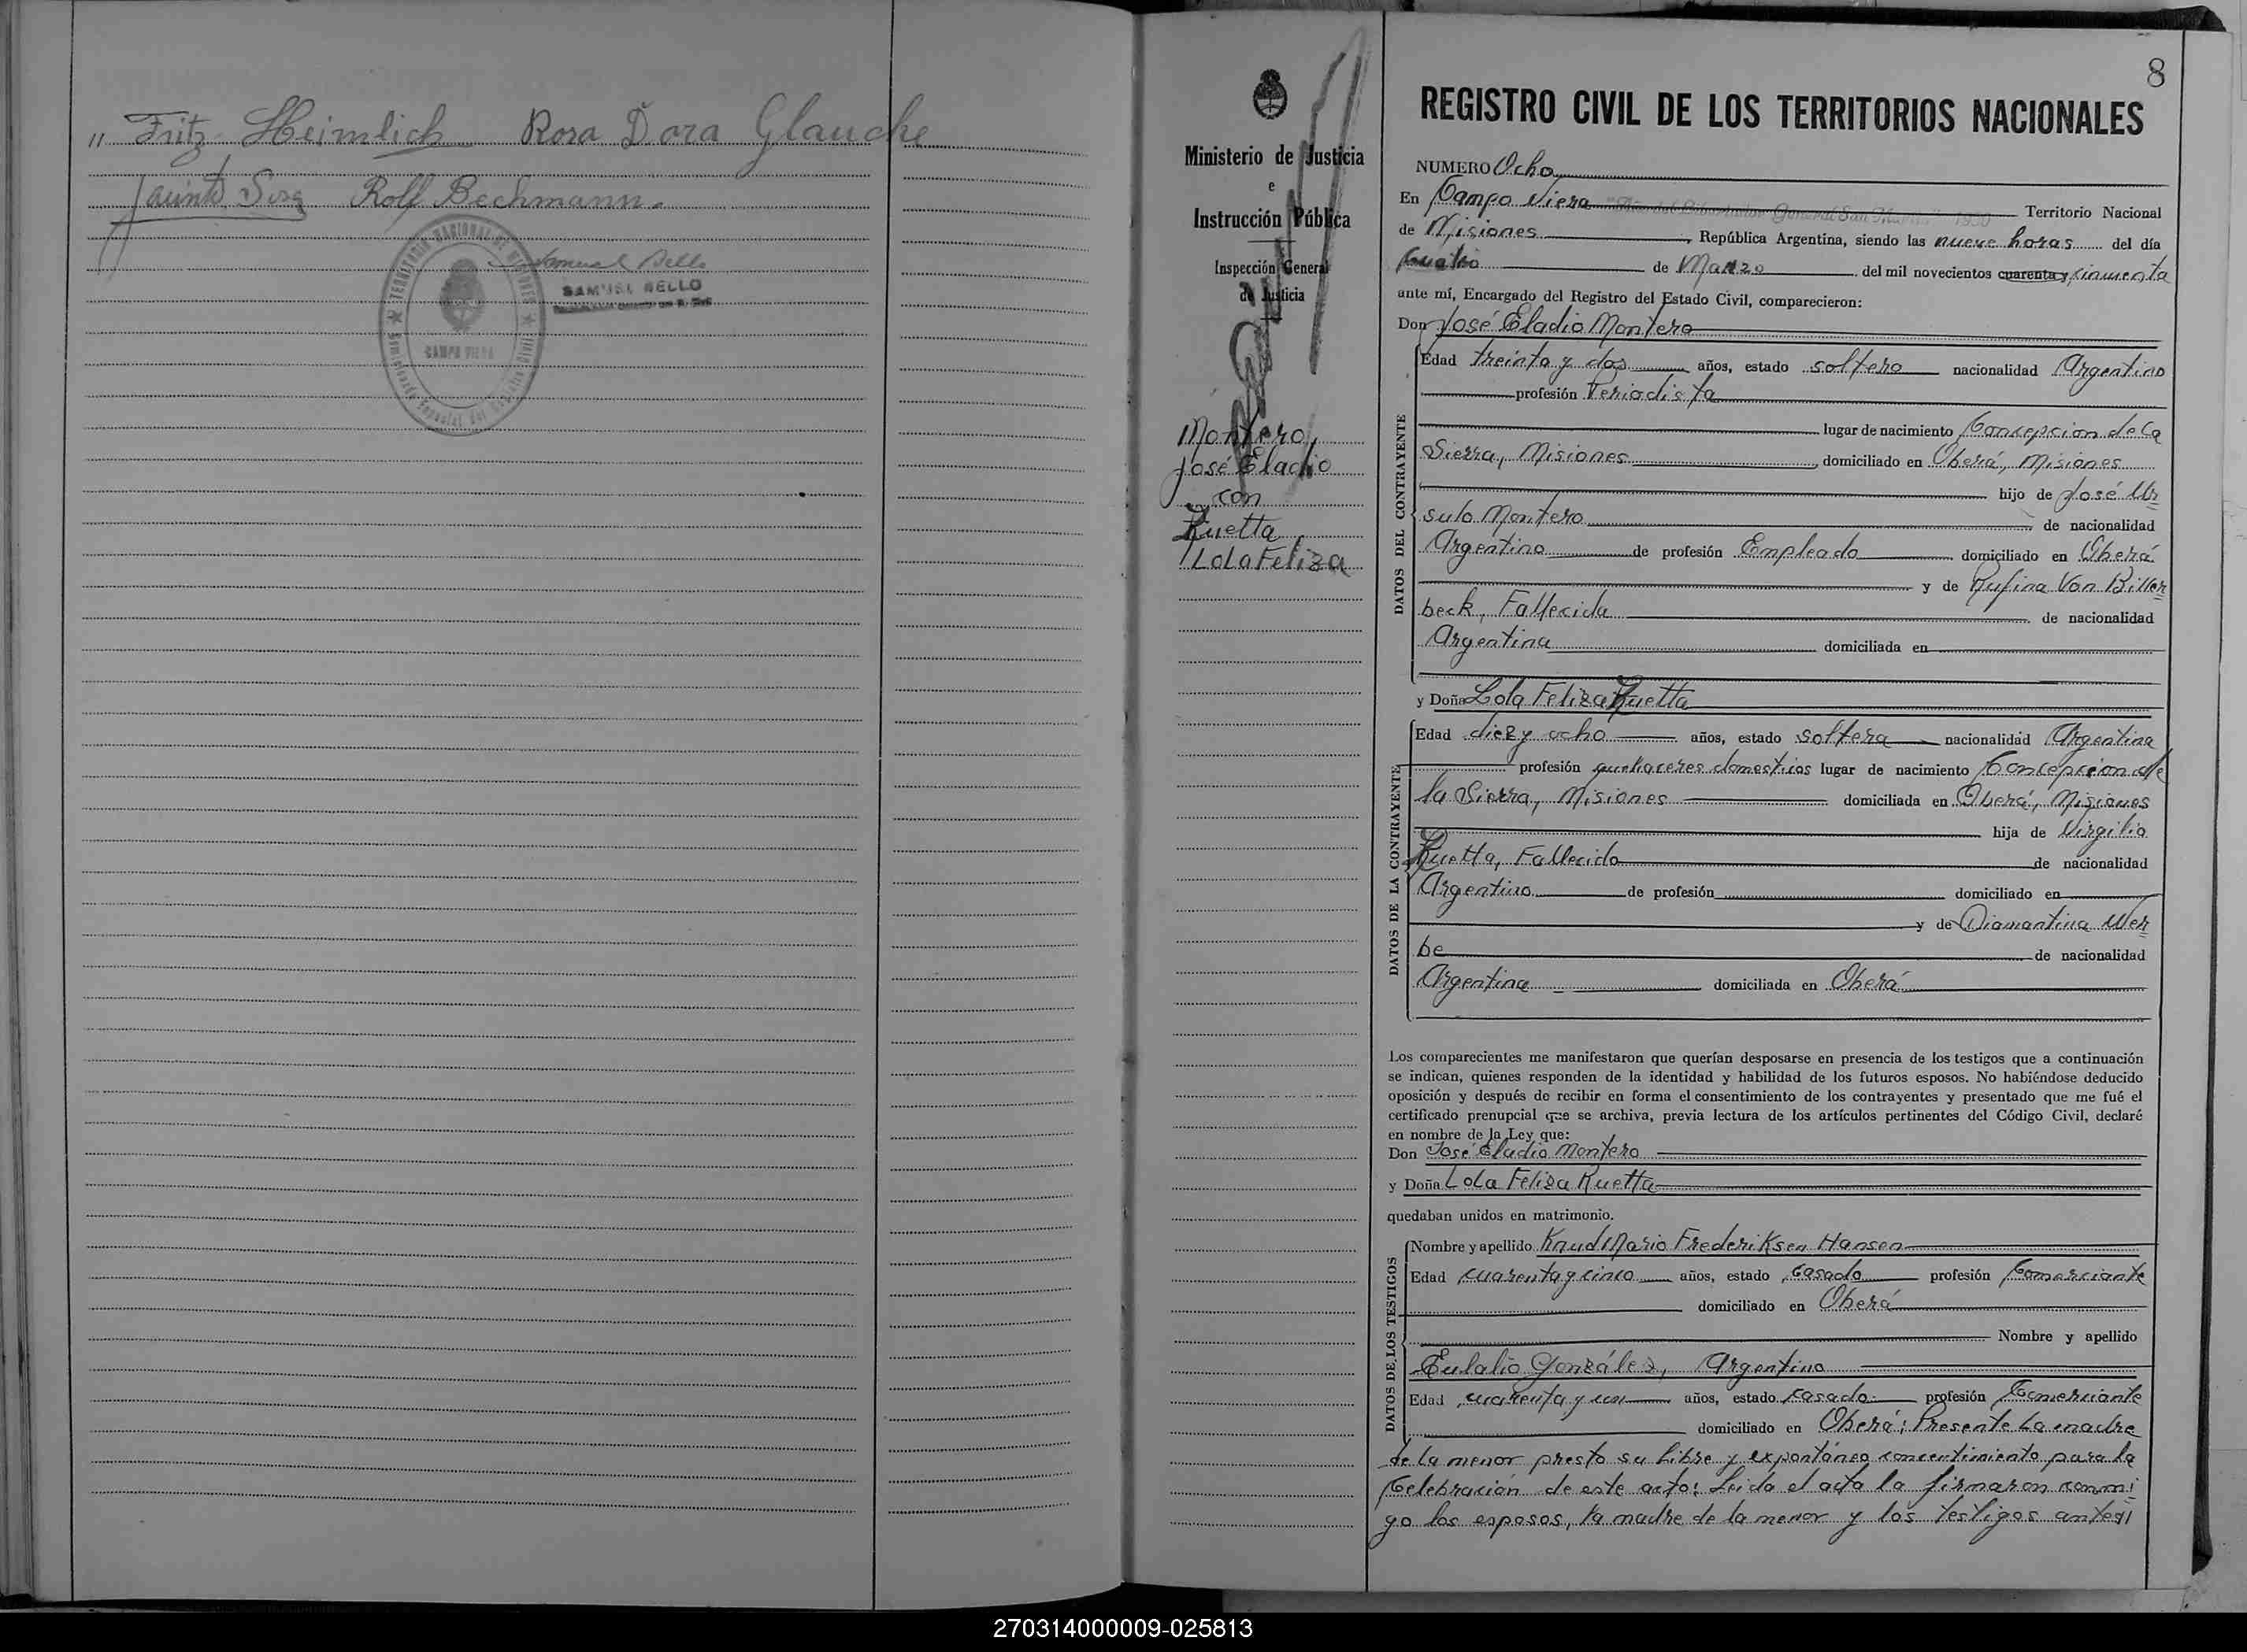 " Fritz Heimlich Rosa Dora Glauche
Rolf Bechmann.
Samuel Bello
SAMUEL BELLO
TERRITORIO NACIONAL DE MISIONES
CAMPO VIERA
8
REGISTRO CIVIL DE LOS TERRITORIOS NACIONALES
Ministerio de Justicia
e
Instrucción Pública
Inspección General
de Justicia
Montero,
José Eladio
con
Ruetta
Lola Feliza
NUMERO Ocho
En Campo Viera "Año del Libertador General San Martin" 1950 Territorio Nacional
de Misiones, República Argentina, siendo las nueve horas del día
cuatro de Marzo del mil novecientos cuarenta y cincuenta
ante mí, Encargado del Registro del Estado Civil, comparecieron:
Don José Eladio Montero
DATOS DEL CONTRAYENTE
Edad treinta y dos años, estado soltero nacionalidad Argentino
profesión Periodista
lugar de nacimiento Concepcion de la
Sierra, Misiones, domiciliado en Oberá, Misiones
hijo de José Ur
sulo Montero de nacionalidad
Argentino de profesión Empleado domiciliado en Oberá
y de Rufina Von Biller
beck, Fallecida de nacionalidad
Argentina domiciliada en
y Doña Lola Feliza Ruetta
DATOS DE LA CONTRAYENTE
Edad diez y ocho años, estado soltera nacionalidad Argentina
profesión quehaceres domesticos lugar de nacimiento Concepcion de
la Sierra, Misiones domiciliada en Oberá, Misiones
hija de Virgilio
Ruetta, Fallecido de nacionalidad
Argentino de profesión domiciliado en
y de Diamantina Wer
be de nacionalidad
Argentina domiciliada en Oberá
Los comparecientes me manifestaron que querían desposarse en presencia de los testigos que a continuación
se indican, quienes responden de la identidad y habilidad de los futuros esposos. No habiéndose deducido
oposición y después de recibir en forma el consentimiento de los contrayentes y presentado que me fué el
certificado prenupcial que se archiva, previa lectura de los artículos pertinentes del Código Civil, declaré
en nombre de la Ley que:
Don José Eladio Montero
y Doña Lola Feliza Ruetta
quedaban unidos en matrimonio.
DATOS DE LOS TESTIGOS
Nombre y apellido Knud Mario Frederiksen Hansen
Edad cuarenta y cinco años, estado casado profesión Comerciante
domiciliado en Oberá
Nombre y apellido
Eulalio González, Argentino
Edad cuarenta y un años, estado casado profesión Comerciante
domiciliado en Oberá; Presente la madre
de la menor presto su libre y expontáneo concentimiento para la
Celebración de este acto: Leida el acta la firmaron conmi
go los esposos, la madre de la menor y los testigos antedi
270314000009-025813